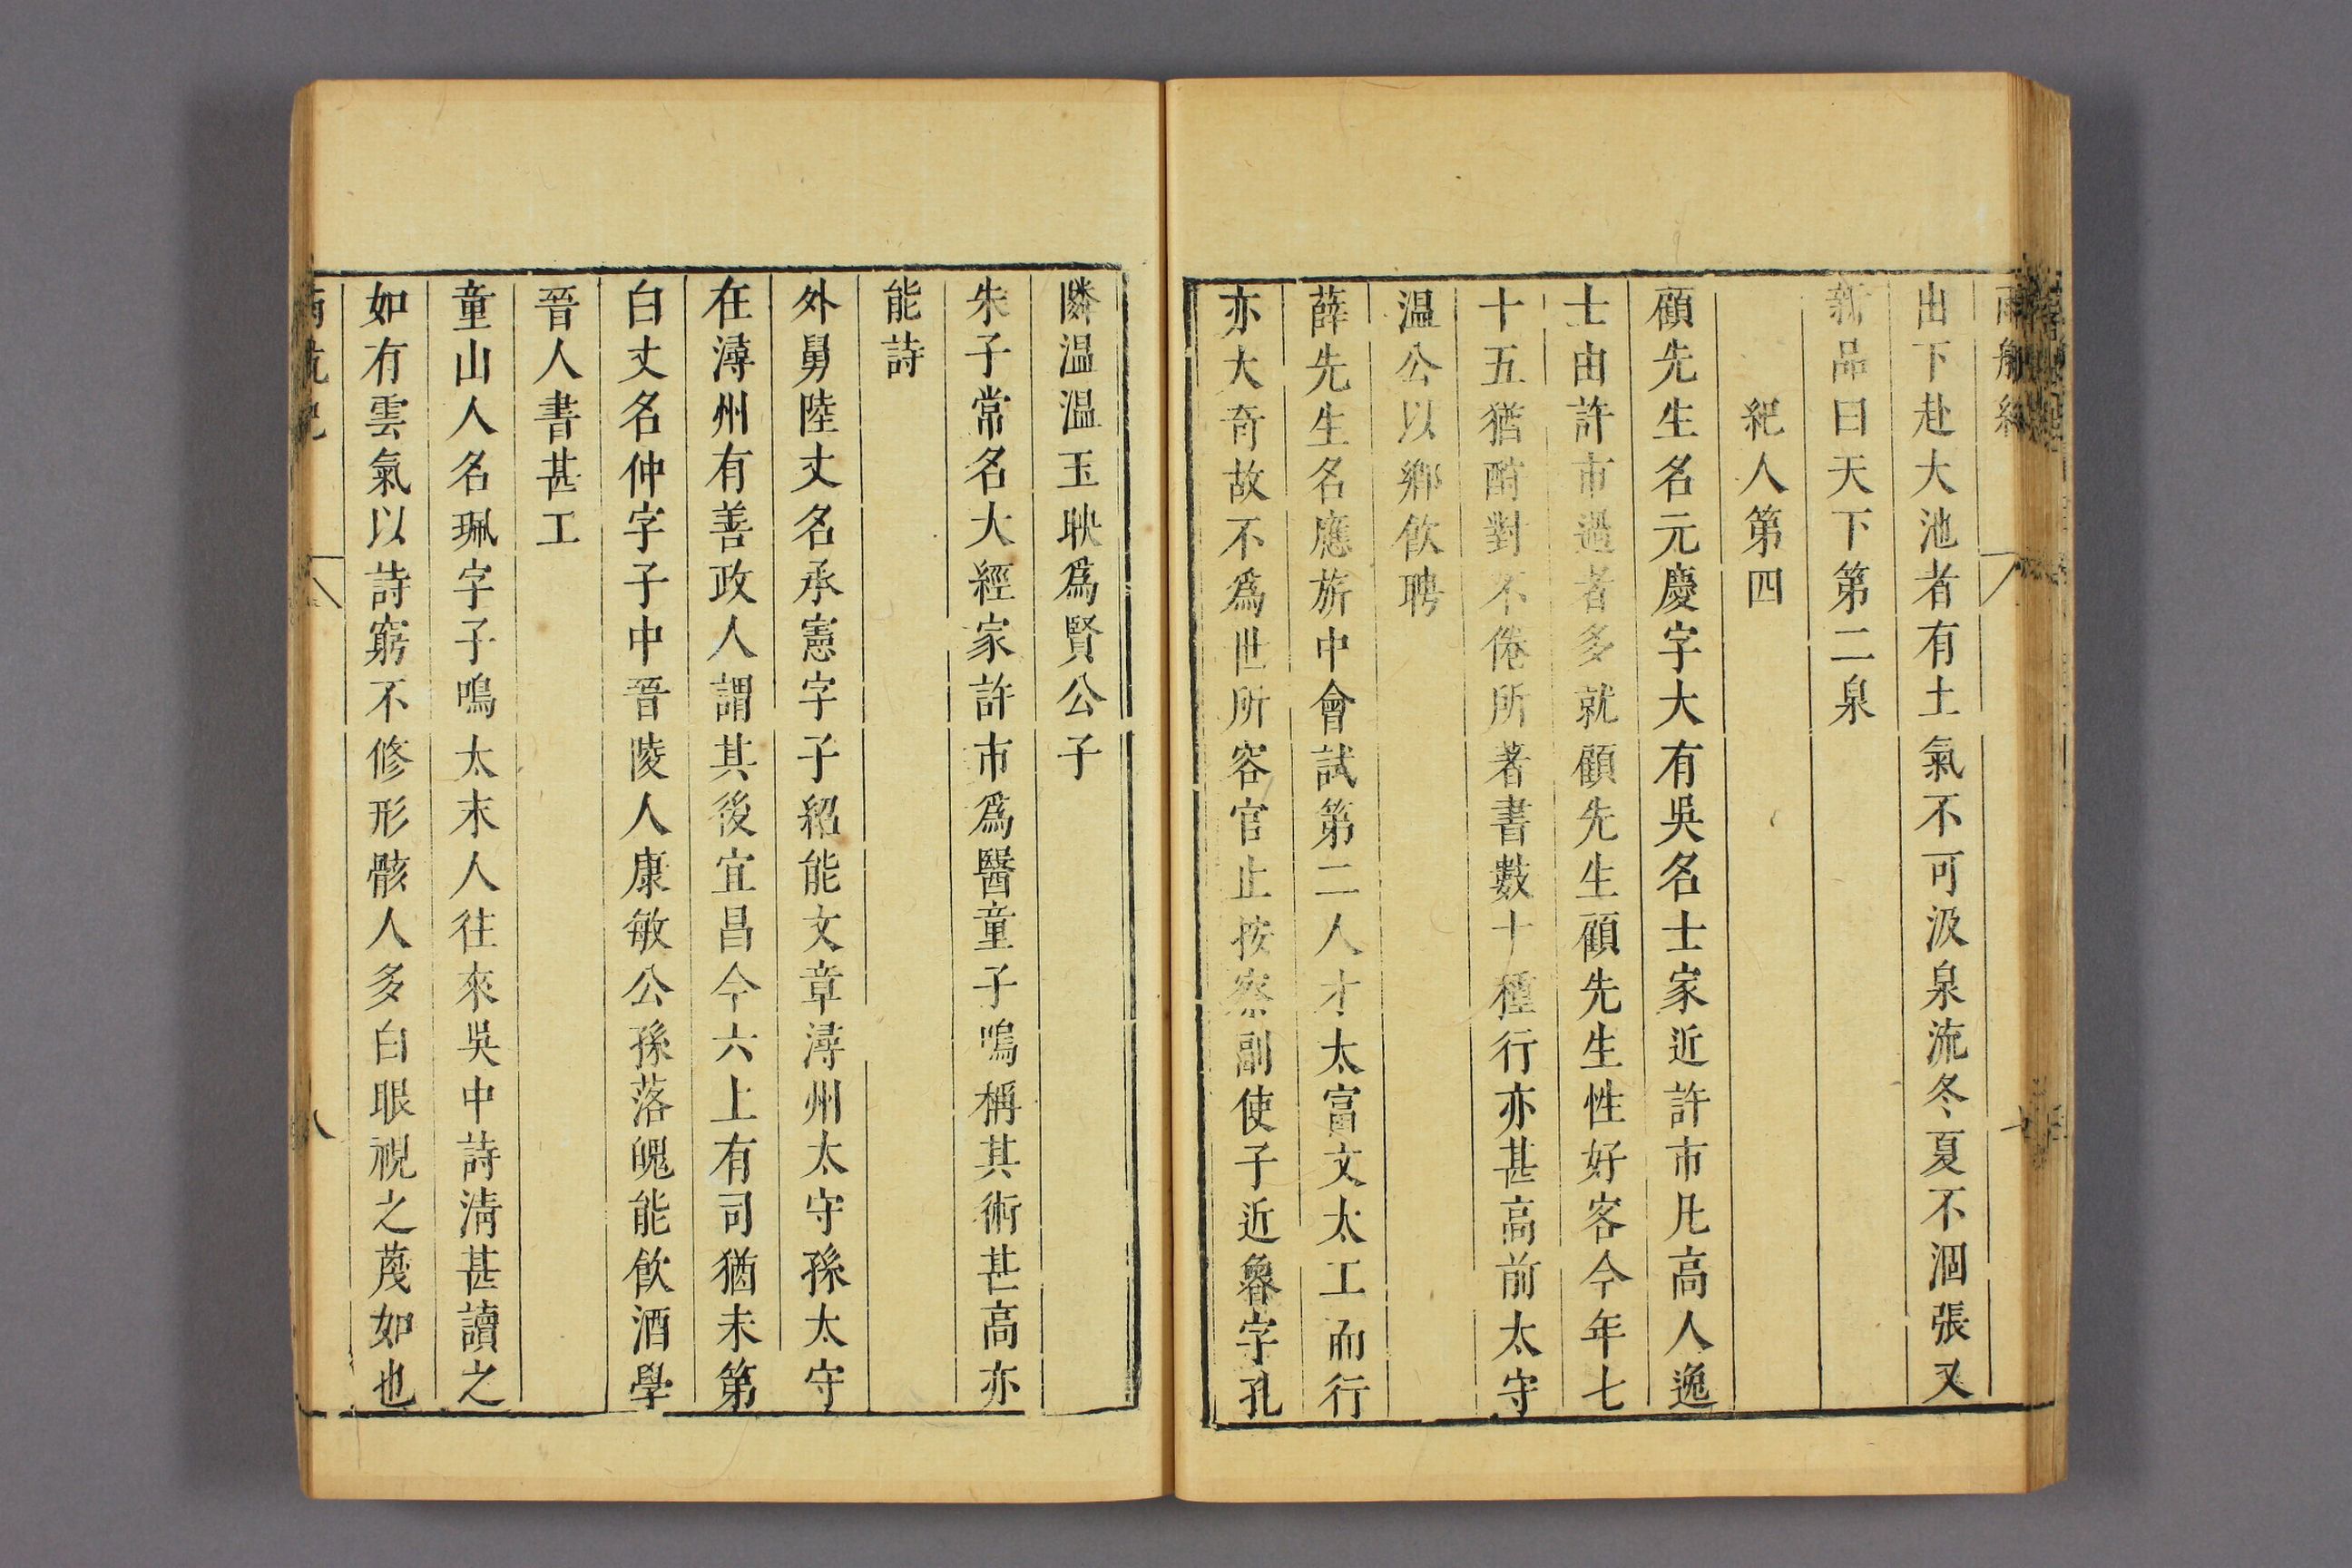 雨航紀
出下赴大池者有土氣不可汲泉流冬夏不涸張又
新品曰天下第二泉
紀人第四
顧先生名元慶字大有吳名士家近許市凡高人逸
士由許市過者多就顧先生顧先生性好客今年七
十五猶酧對不倦所著書數十種行亦甚高前太守
溫公以鄉飲聘
薛先生名應旂中會試第二人才太富文太工而行
亦大奇故不爲世所容官止按察副使子近魯字孔
隣温温玉映爲賢公子
朱子常名大經家許市爲醫童子鳴稱其術甚高亦
能詩
外舅陸丈名承憲字子紹能文章潯州太守孫太守
在潯州有善政人謂其後宜昌今六上有司猶未第
白丈名仲字子中晉陵人康敏公孫落魄能飲酒學
晉人書甚工
童山人名珮字子鳴太末人往來吳中詩淸甚讀之
如有雲氣以詩窮不修形骸人多白眼視之蔑如也
雨航紀
八